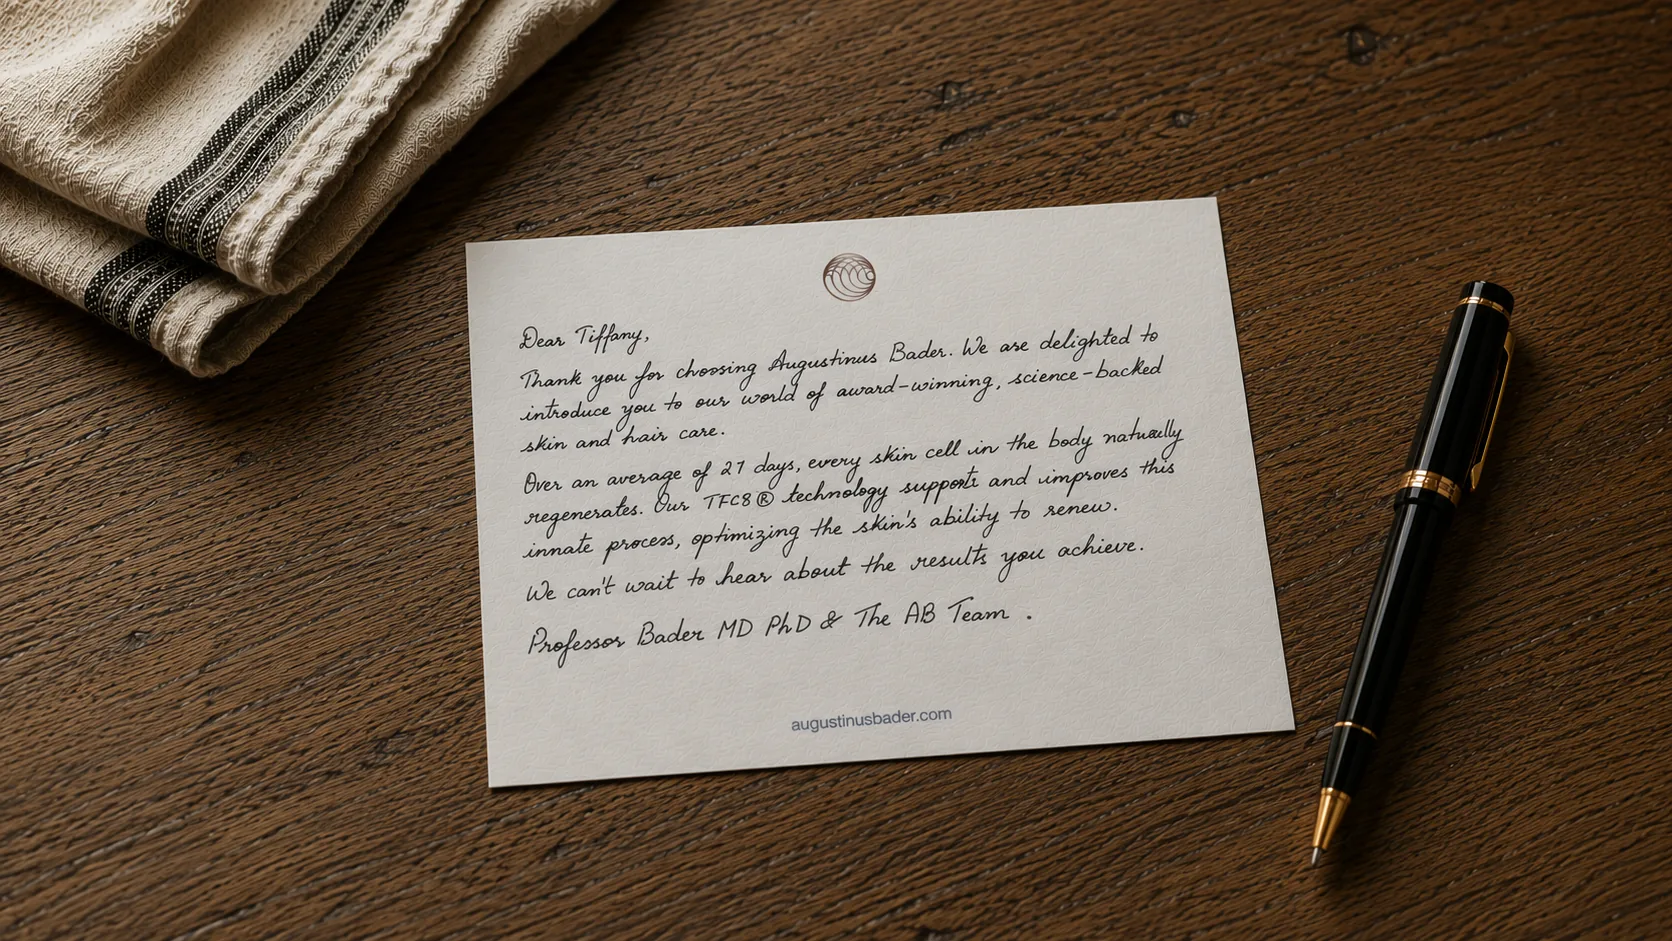 Dear Tiffany,
Thank you for choosing Augustinus Bader. We are delighted to
introduce you to our world of award-winning, science-backed
skin and hair care.
Over an average of 27 days, every skin cell in the body naturally
regenerates. Our TFC8® technology supports and improves this
innate process, optimizing the skin's ability to renew.
We can't wait to hear about the results you achieve.
Professor Bader MD PhD & The AB Team .
augustinusbader.com